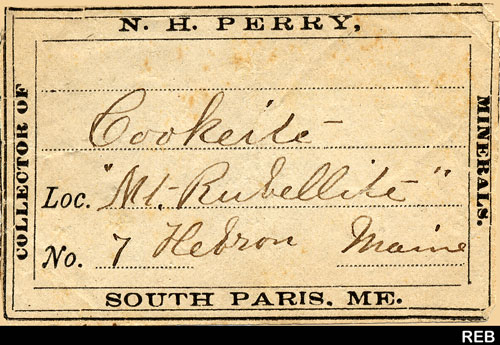 N. H. PERRY,
COLLECTOR OF
MINERALS.
Cookeite
Loc. "Mt. Rubellite"
No. 7 Hebron Maine
SOUTH PARIS, ME.
REB